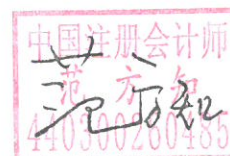 中国注册会计师
范方知
440300260485
范方知